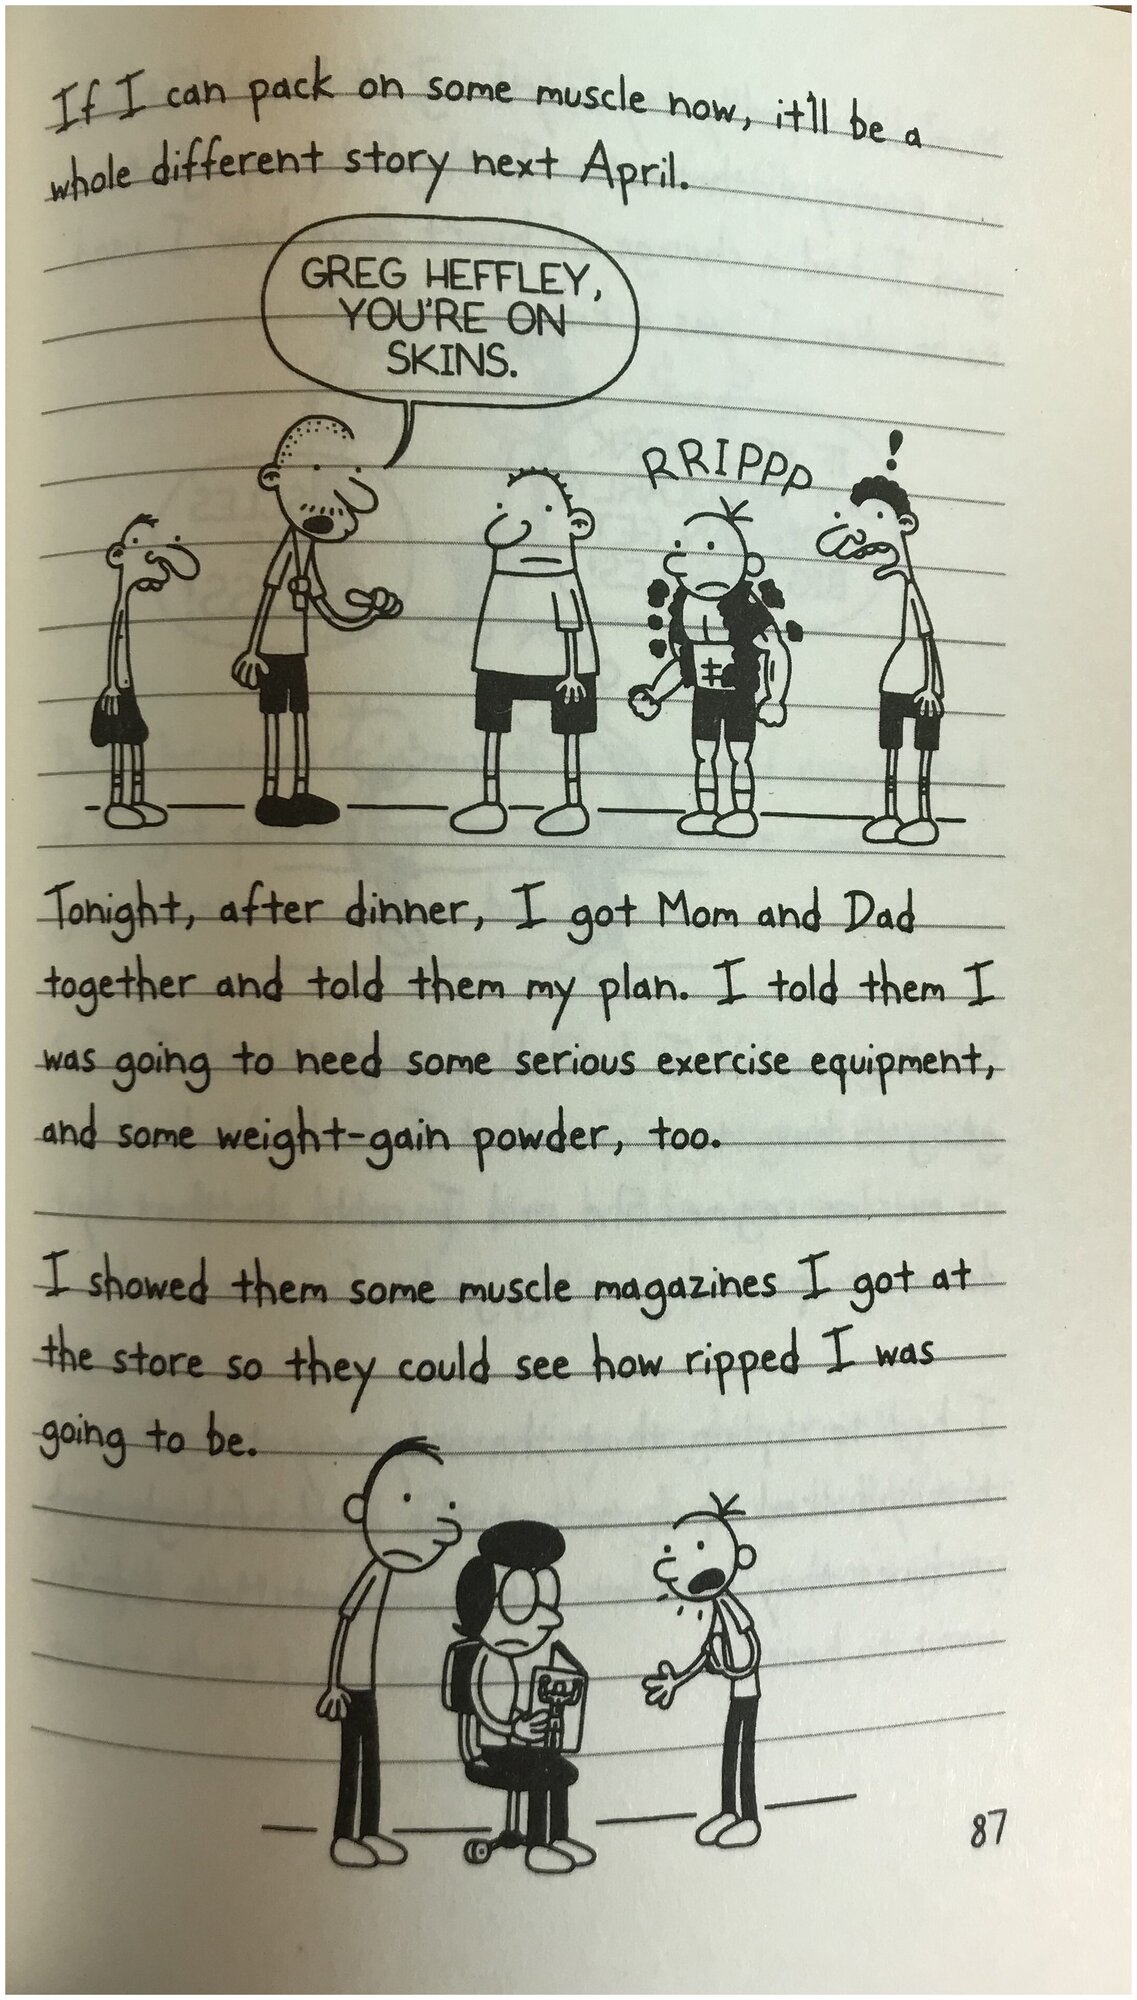 If I can pack on some muscle now, it'll be a
whole different story next April.
GREG HEFFLEY,
YOU'RE ON
SKINS.
RRIPPP
!
Tonight, after dinner, I got Mom and Dad
together and told them my plan. I told them I
was going to need some serious exercise equipment,
and some weight-gain powder, too.
I showed them some muscle magazines I got at
the store so they could see how ripped I was
going to be.
87